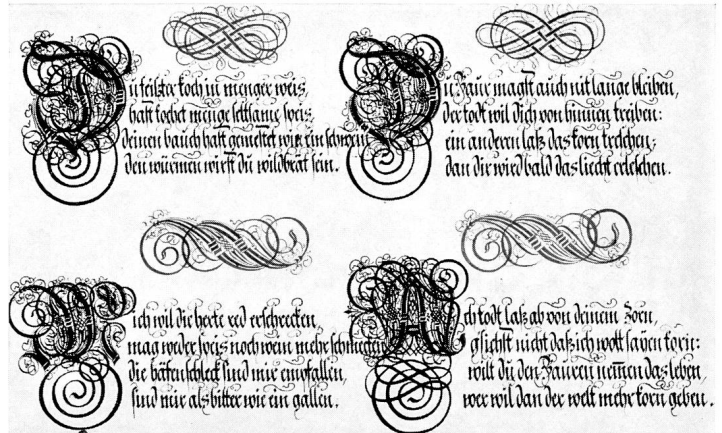 Du feister koch in menger weis,
hast kochet menge seltsame speis,
deinen bauch hast gemestet wie ein schwein
den würmen wirst du wildbrät sein.
Du Baur magst auch nit lange bleiben,
der todt wil dich von hinnen treiben:
ein anderen laß das korn treschen;
dan dir wird bald das liecht erleschen.
Mich wil die herte red erschrecken,
mag weder speis noch wein mehr schmecken
die bäschleck sind mir empfallen,
sind mir als bitter wie ein gallen.
Ach todt laß ab von deinem Zorn,
gsichst nicht daß ich wott säyen korn:
wilt du den Bauren nemmen das leben,
wer wil dan der welt mehr korn geben.